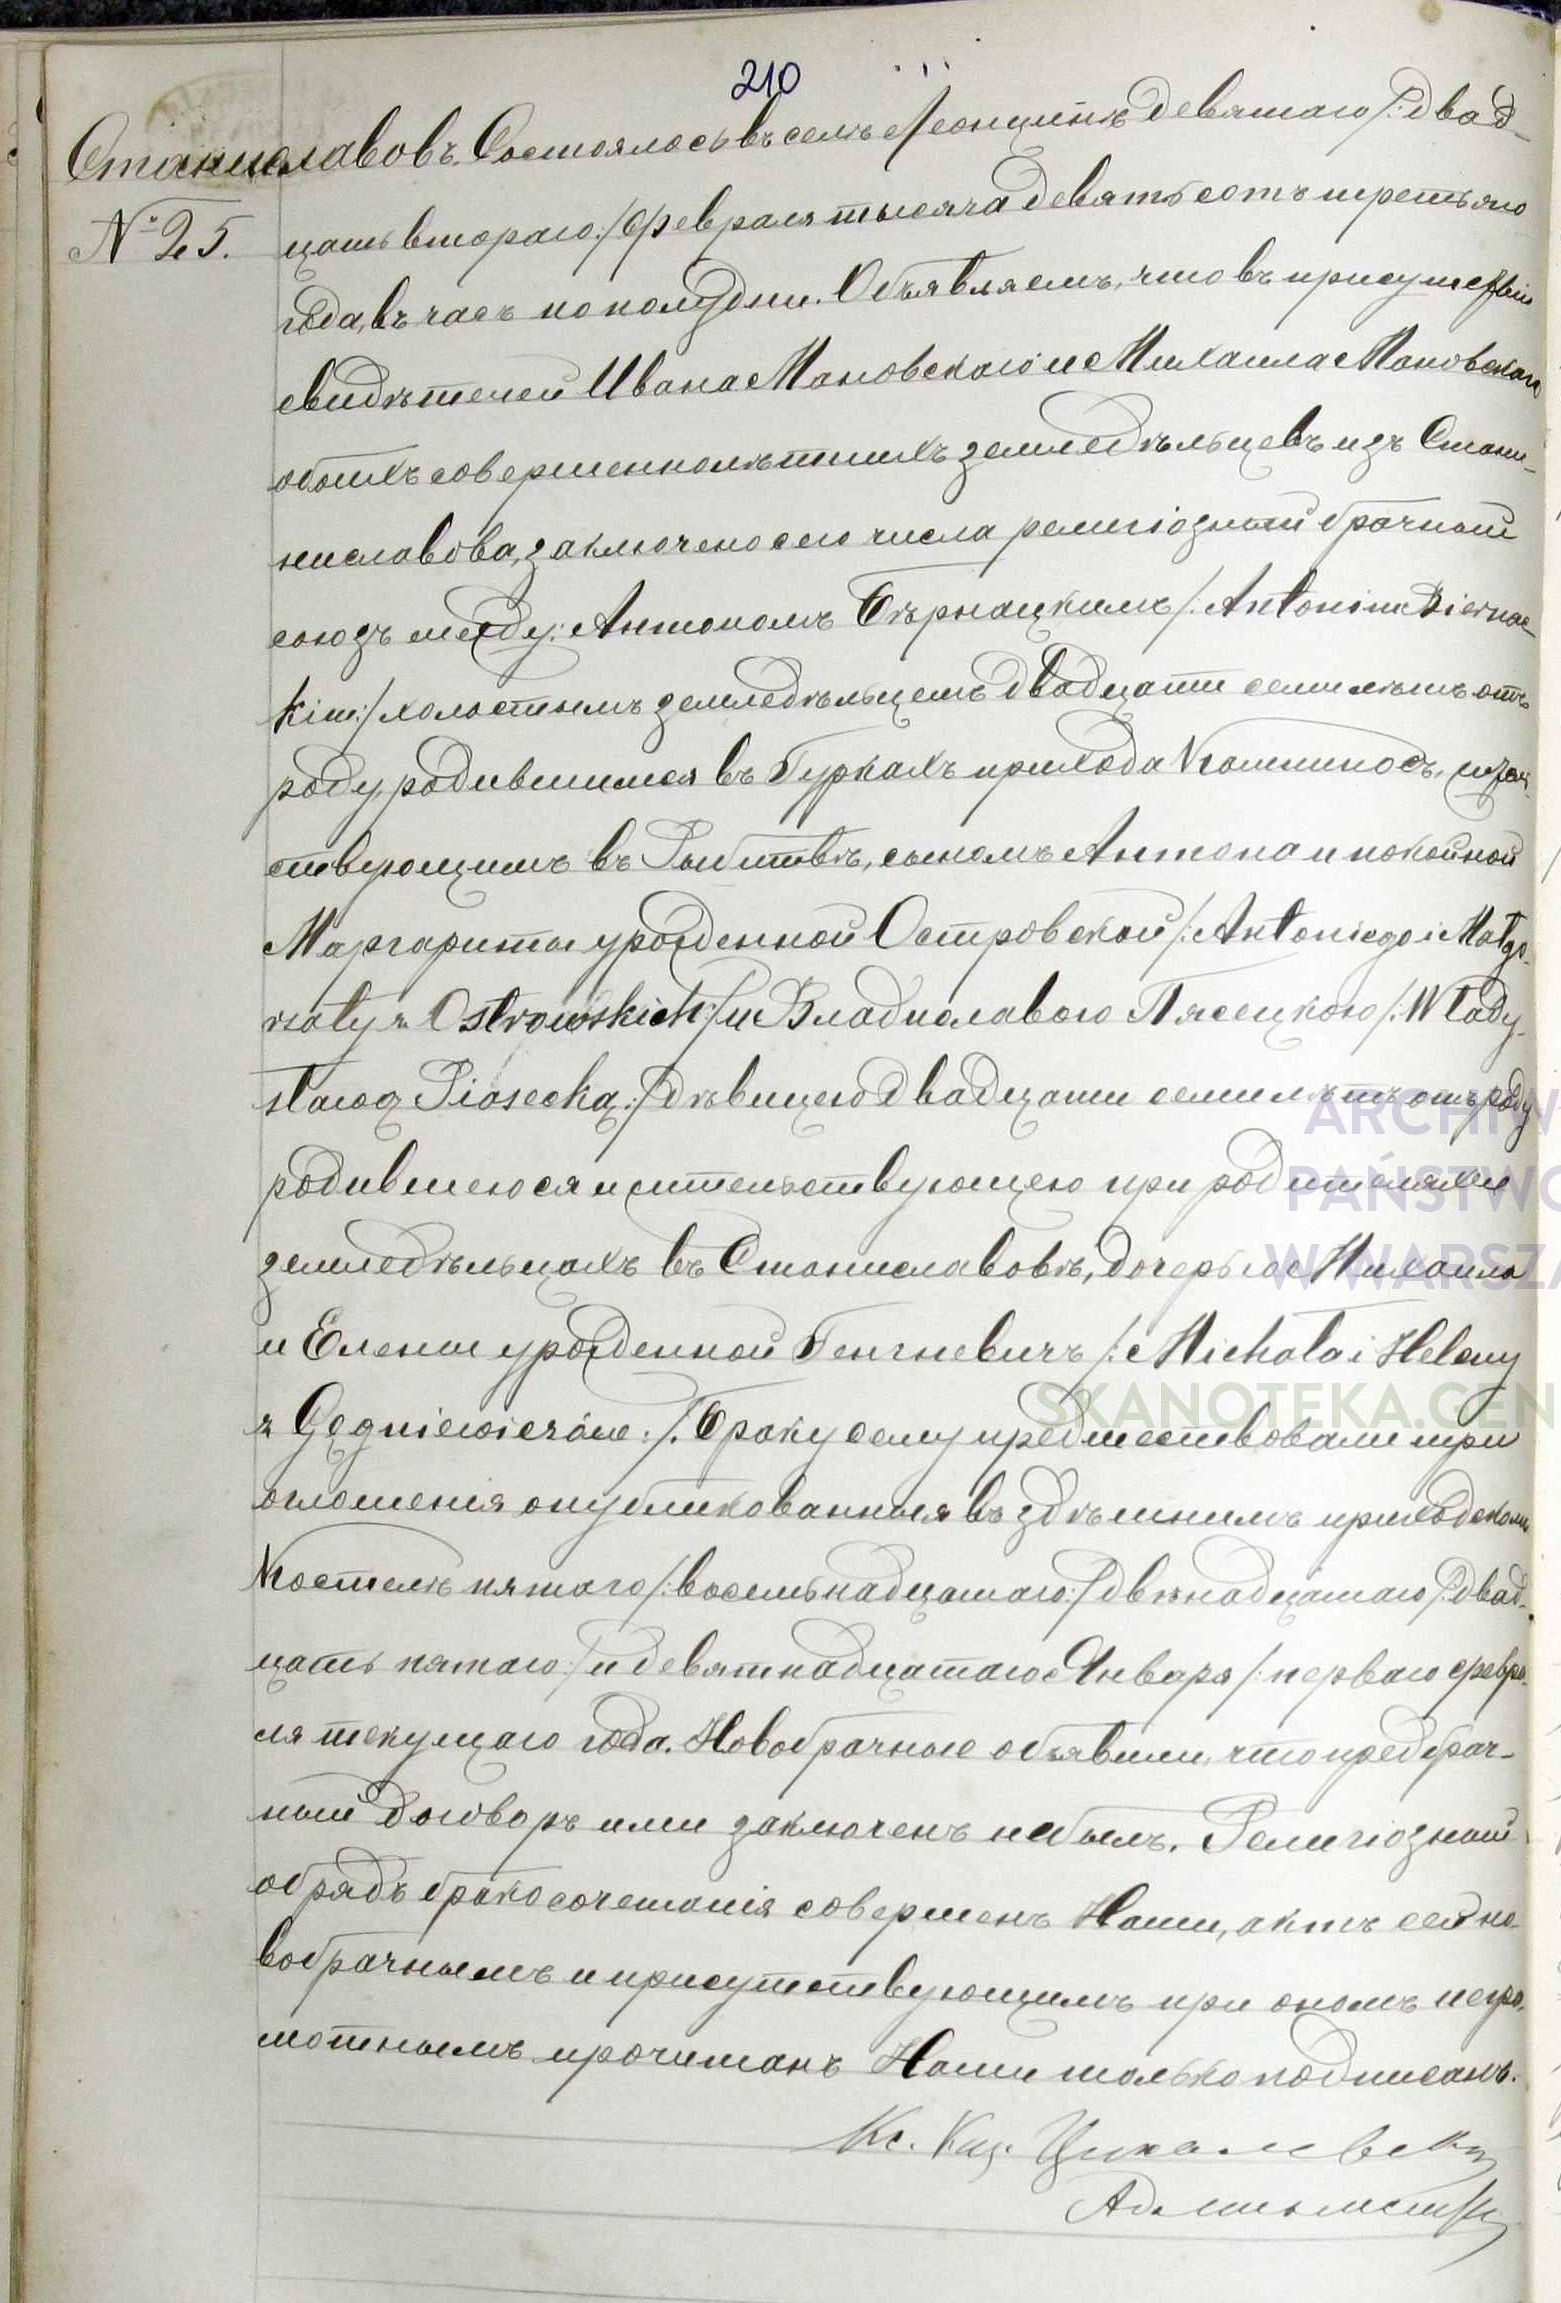 210
Станиславовъ. Состоялось въ селѣ Леонцинѣ девятаго /:двад-
№ 25. цать втораго:/ февраля тысяча девятьсотъ третьяго
года, въ часъ по полудни. Объявляемъ, что въ присутствіи
свидѣтелей Ивана Мановскаго и Михаила Мановскаго
обоихъ совершеннолѣтнихъ земледѣльцевъ изъ Стани-
ниславова, заключено сего числа религіозный брачный
союзъ между: Антономъ Бѣрнацкимъ /:Antonim Biernac-
kim:/ холостымъ земледѣльцемъ двадцати семи лѣтъ отъ
роду, родившимся въ Гуркахъ прихода Кампиносъ,
ствующимъ въ Рыбитвѣ, сыномъ Антона и покойной
Маргариты урожденной Островской /:Antoniego i Małgo-
rzaty z Ostrowskich:/ и Владиславою Пясецкою /:Włady-
sławą Piasecką:/ дѣвицею двадцати семи лѣтъ отъ роду
родившеюся и жительствующею при родителяхъ
земледѣльцахъ въ Станиславовѣ, дочерью Михаила
и Елены урожденной Генгневичъ /:Michała i Heleny
z Gęgniewiczów:/. Браку сему предшествовали три
оглошенія опубликованныя въ здѣшнимъ приходскомъ
Костелѣ пятаго /:восемьнадцатаго:/ двѣнадцатаго /:двад-
цать пятаго:/ и девятнадцатаго Января /:перваго февра-
ля текущаго года. Новобрачные объявили, что предбрач-
ный договоръ ими заключенъ небылъ. Религіозный
обрядъ бракосочетанія совершенъ Нами, актъ сей но-
вобрачнымъ и присутствующимъ при ономъ негра-
мотнымъ прочитанъ Нами только подписанъ.
Кс. Каз.
ARCHIW
PAŃSTWO
W WARSZA
SKANOTEKA.GEN